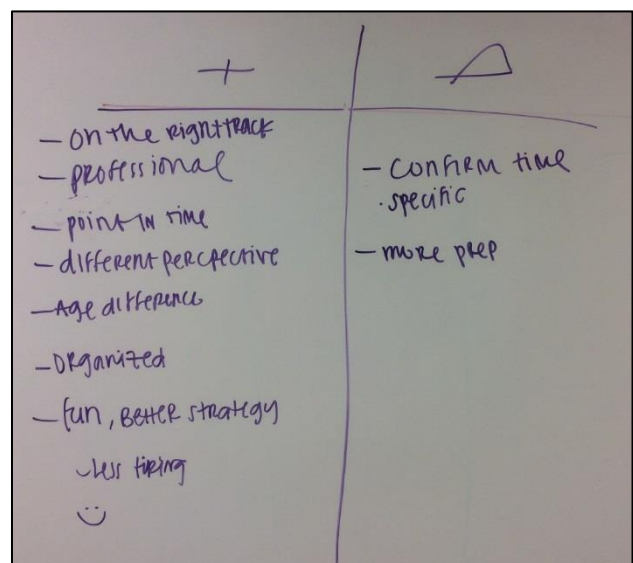 +
- on the right track
- professional
- point in time
- different percpective
- Age difference
- organized
- fun, better strategy
- less tiring
:)
Δ
- confirm time
· specific
- more prep